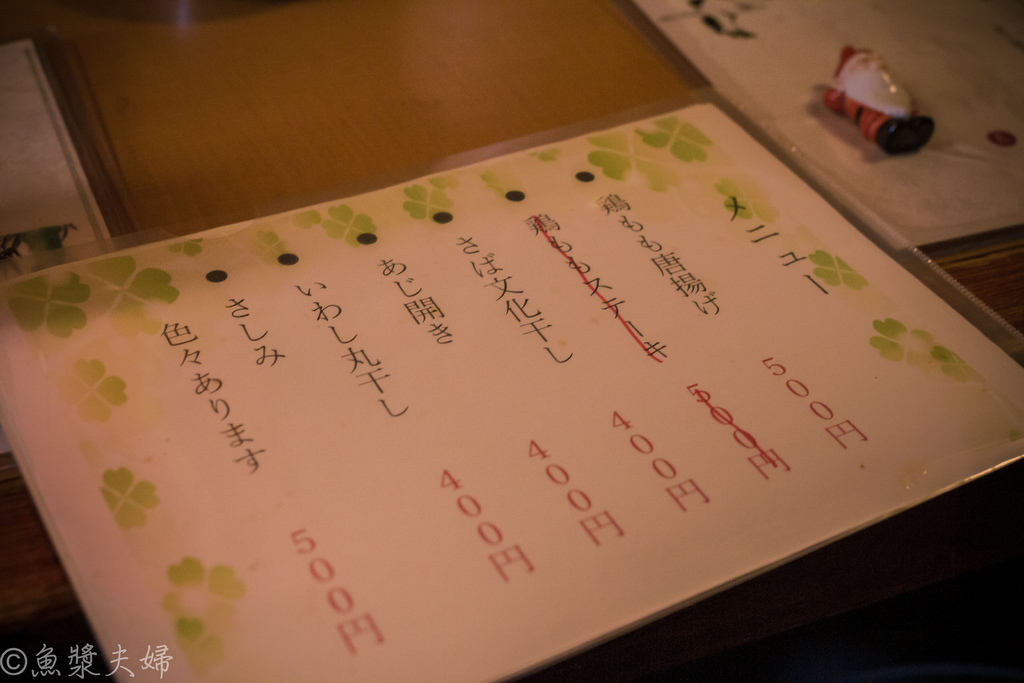 メニュー
鶏もも唐揚げ 500円
鶏ももステーキ 500円
さば文化干し 400円
あじ開き 400円
いわし丸干し 400円
さしみ 500円
色々あります
©魚漿夫婦